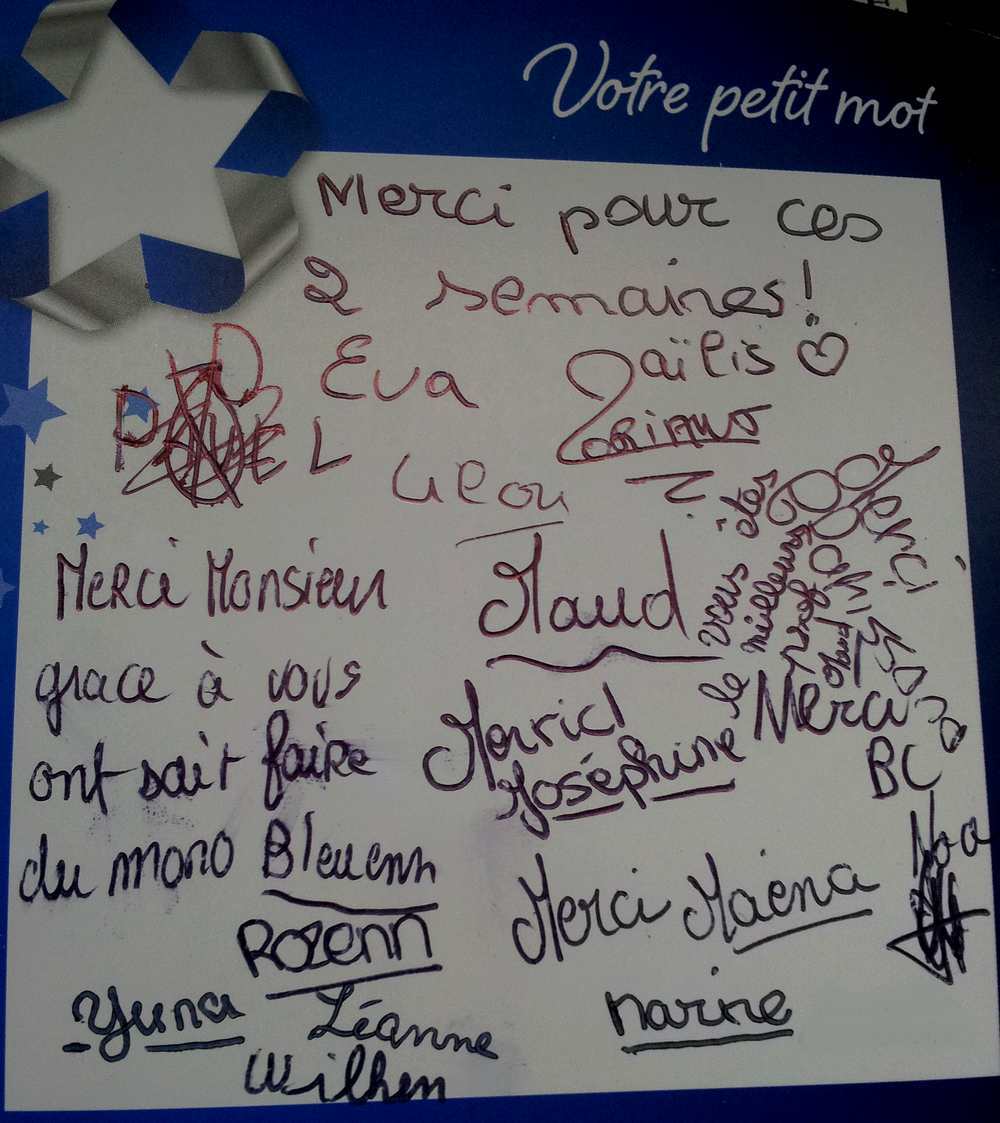 Votre petit mot
Merci pour ces
2 semaines!
Eva Zaïlis
LORIANO
P L
Merci Monsieur
grace à vous
ont sait faire
du mono Bleuenn
Rozenn
Yuna Léanne
Wilhen
Maud
Merci
Joséphine
vous êtes
le meilleurs
prof
Maud
Merci
Merci
BC
Noa
Merci Maëna
narine